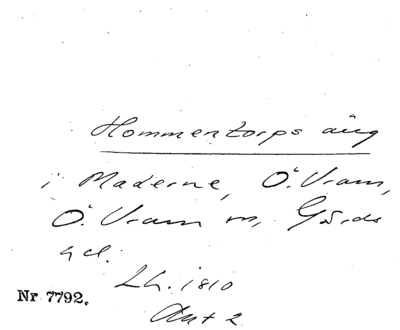 Hommentorps äng
i Maderne, Ö. Vram,
Ö. Vram sn, Gärds
hd.
Lh. 1810
Akt 2
Nr 7792.